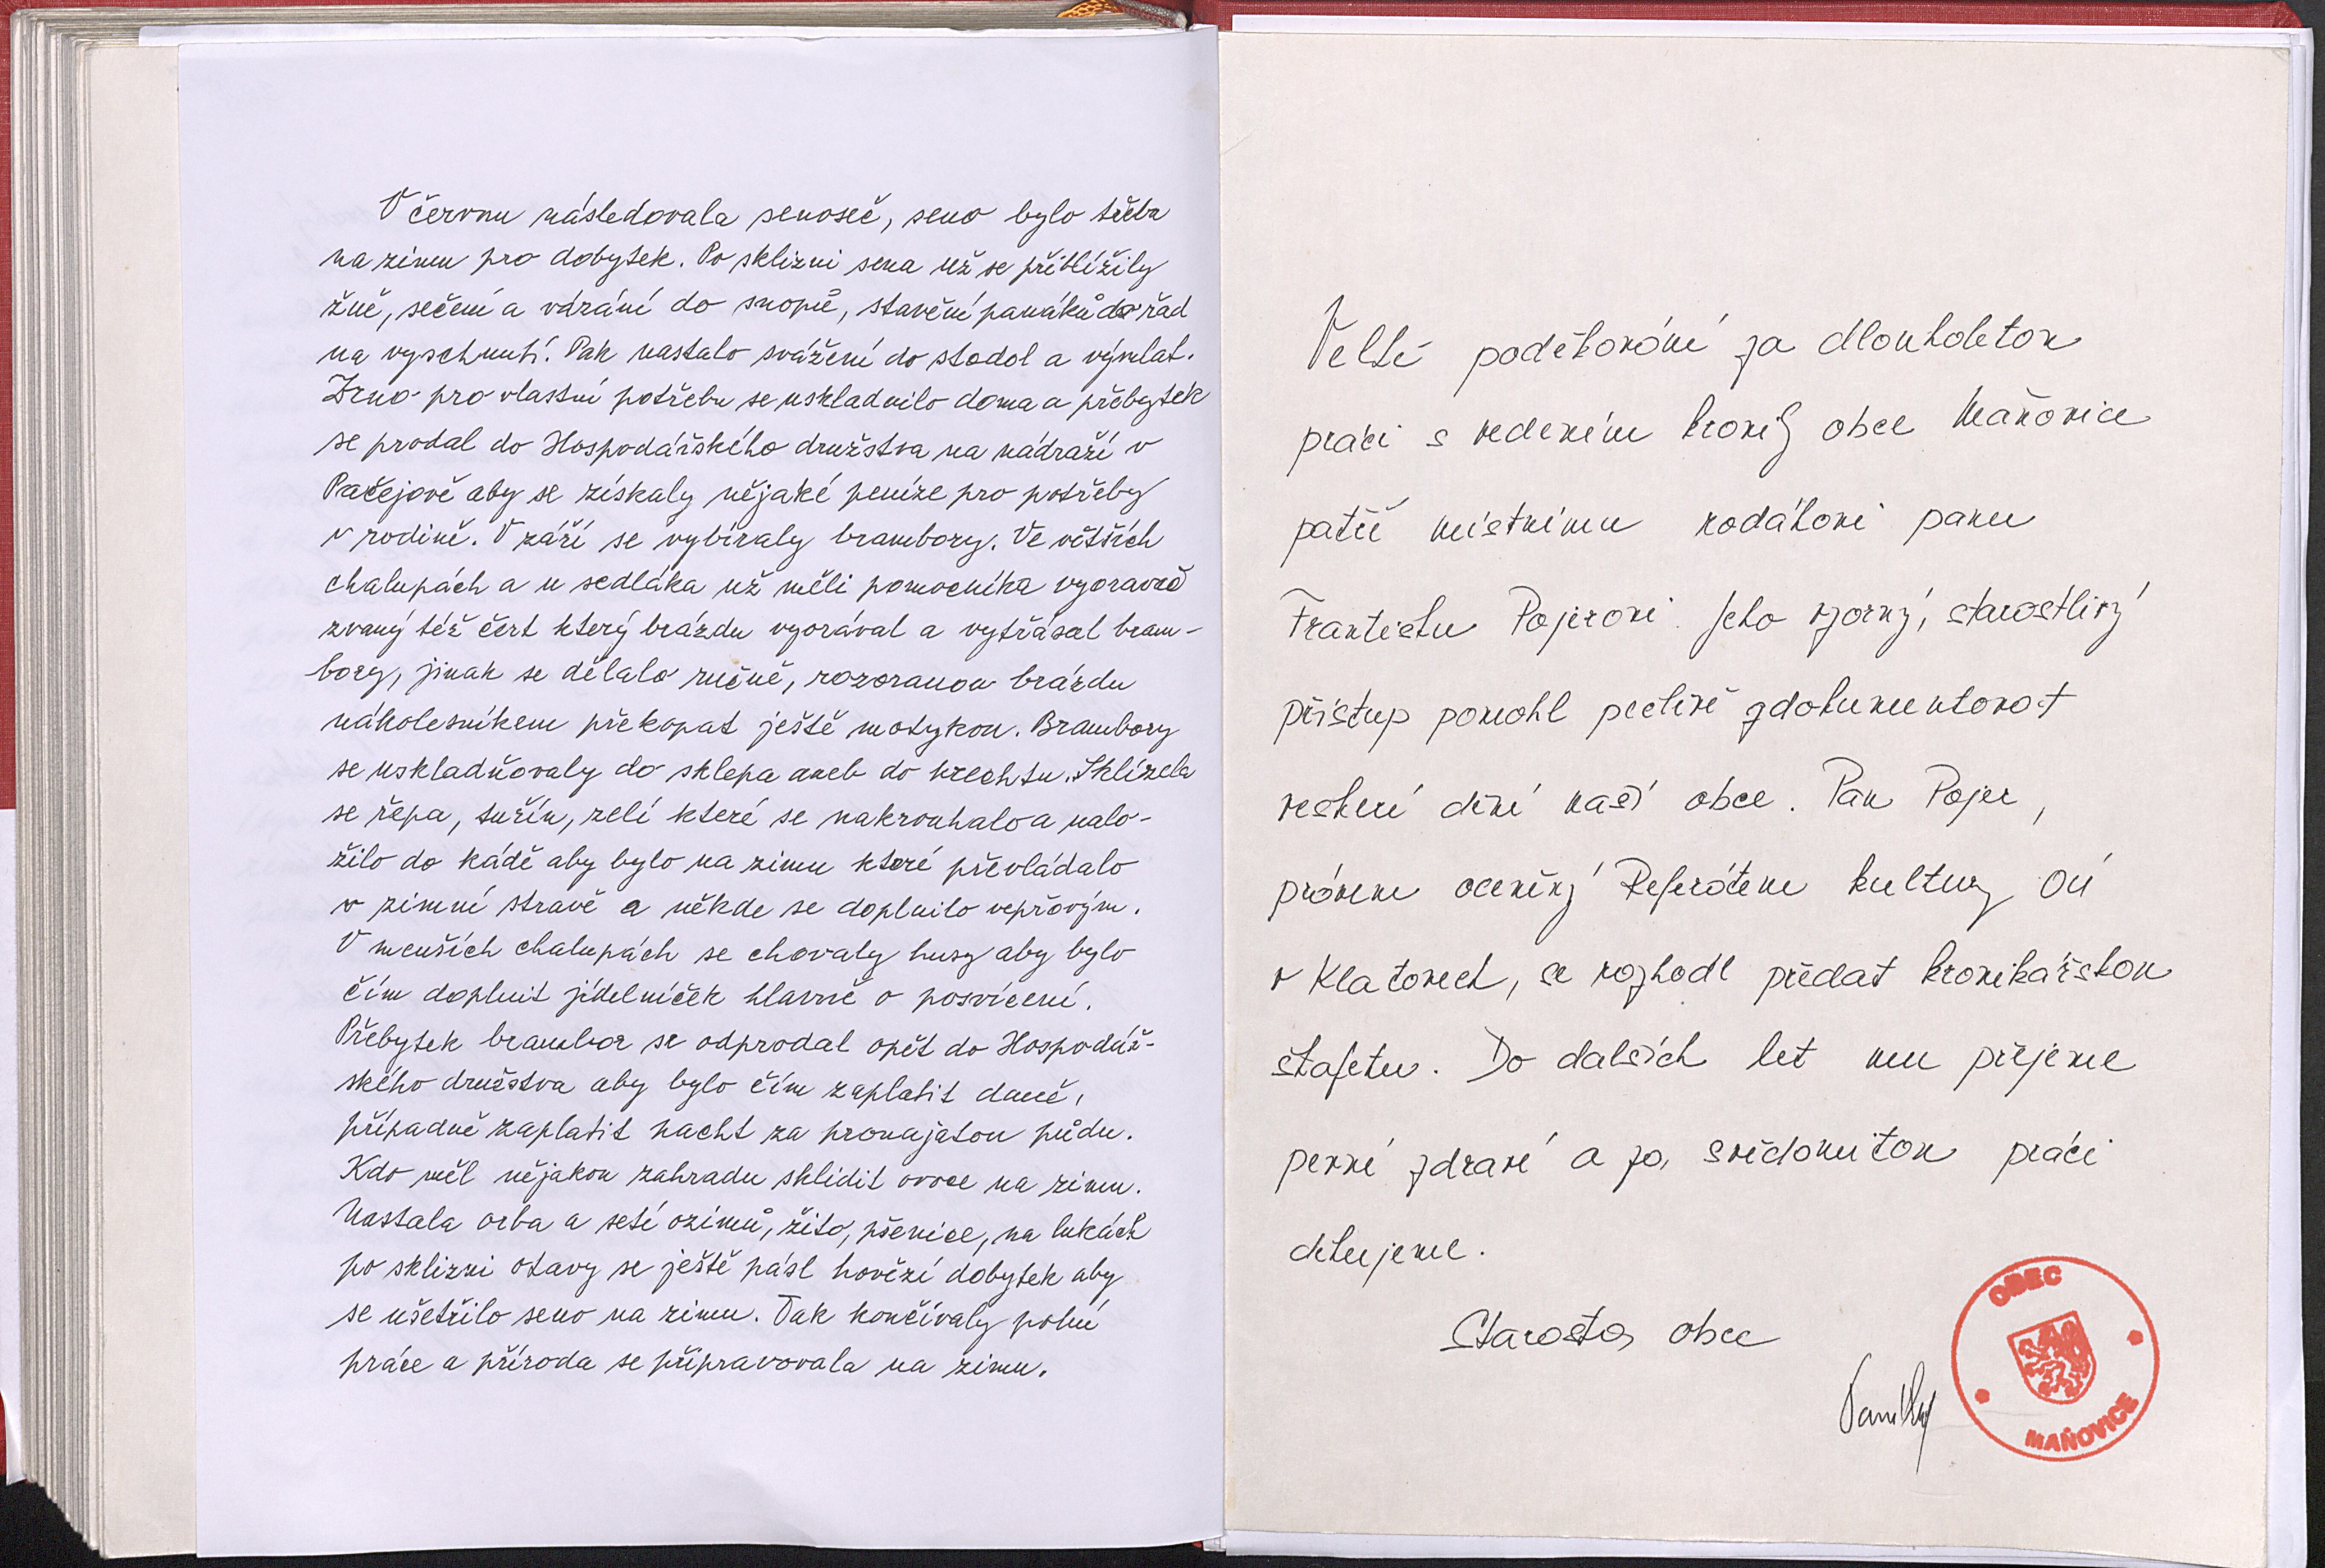 V červnu následovala senoseč, seno bylo třeba
na zimu pro dobytek. Po sklizni sena už se přiblížily
žně, sečení a vázání do snopů, stavění panáků do řad
na vyschnutí. Pak nastalo svážení do stodol a výmlat.
Zrno pro vlastní potřebu se uskladnilo doma a přebytek
se prodal do Hospodářského družstva na nádraží v
Pačejově aby se získaly nějaké peníze pro potřeby
v rodině. V září se vybíraly brambory. Ve větších
chalupách a u sedláka už měli pomocníka vyoravač
zvaný též čert který brázdu vyorával a vytřásal bram-
bory, jinak se dělalo ručně, rozoranou brázdu
nákolesníkem překopat ještě motykou. Brambory
se uskladňovaly do sklepa aneb do krechtu. Sklízela
se řepa, tuřín, zelí které se nakrouhalo a nalo-
žilo do kádě aby bylo na zimu které převládalo
v zimní stravě a někde se doplnilo vepřovým.
V menších chalupách se chovaly husy aby bylo
čím doplnit jídelníček hlavně o posvícení.
Přebytek brambor se odprodal opět do Hospodář-
ského družstva aby bylo čím zaplatit daně,
případně zaplatit pacht za pronajatou půdu.
Kdo měl nějakou zahradu sklidit ovoce na zimu.
Nastala orba a setí ozimů, žito, pšenice, na lukách
po sklizni otavy se ještě pásl hovězí dobytek aby
se ušetřilo seno na zimu. Tak končívaly polní
práce a příroda se připravovala na zimu.
Velké poděkování za dlouholetou
práci s vedením kroniky obce Maňovice
patří místnímu rodákovi panu
Františku Pojerovi. Jeho vzorný, starostlivý
přístup pomohl pečlivě zdokumentovat
veškeré dění naší obce. Pan Pojer,
právem oceněný Referátem kultury OÚ
v Klatovech, se rozhodl předat kronikářskou
štafetu. Do dalších let mu přejeme
pevné zdraví a za svědomitou práci
děkujeme.
Starosta obce
OBEC
MAŇOVICE